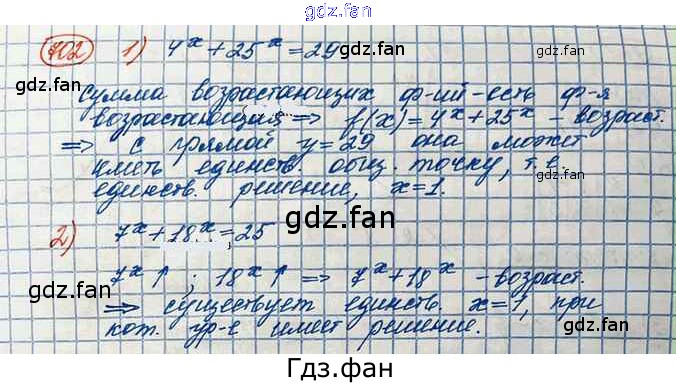 gdz.fan
702 1) 4ˣ + 25ˣ = 29
gdz.fan gdz.fan
Сумма возрастающих ф-ий - есть ф-я
возрастающая ⇒ f(x) = 4ˣ + 25ˣ - возраст.
⇒ с прямой y = 29 она может
gdz.fan gdz.fan
иметь единств. общ. точку, т.е.
единств. решение, x = 1.
gdz.fan
2) 7ˣ + 18ˣ = 25
gdz.fan gdz.fan
7ˣ ↑ ; 18ˣ ↑ ⇒ 7ˣ + 18ˣ - возраст.
⇒ существует единств. x = 1, при
кот. ур-е имеет решение.
gdz.fan gdz.fan
Гдз.фан